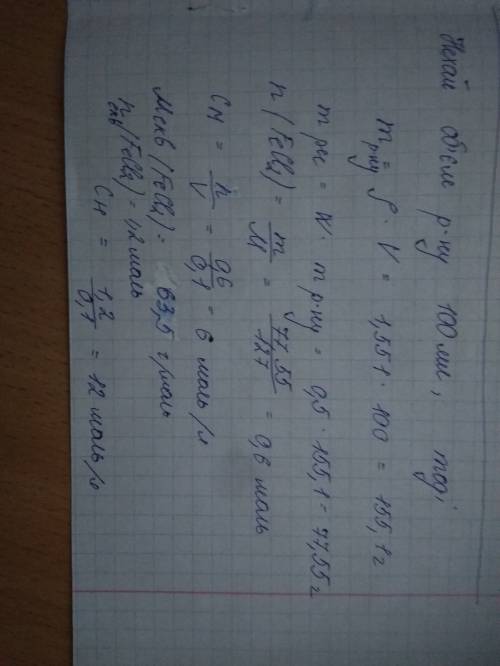 Нехай об'єм р-ну 100 мл, тоді
m р-ну = ρ · V = 1,551 · 100 = 155,1 г
m реч = W · m р-ну = 0,5 · 155,1 = 77,55 г
n (FeCl₂) = m/M = 77,55/127 = 0,6 моль
CM = n/V = 0,6/0,1 = 6 моль/л
Mекв (FeCl₂) = 63,5 г/моль
nекв (FeCl₂) = 1,2 моль
CН = 1,2/0,1 = 12 моль/л